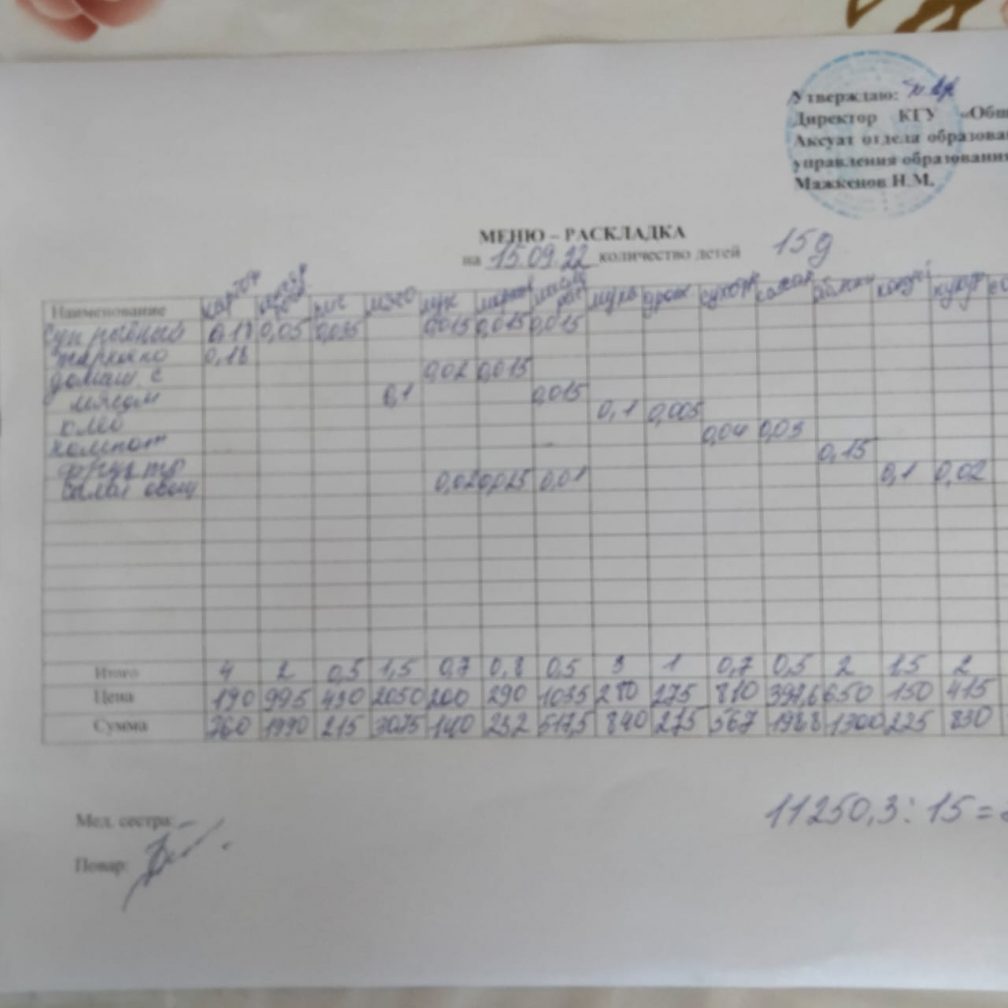 Утверждаю:
Директор КГУ «Общ
Аксуат отдела образова
управления образования
Мажкенов Н.М.
МЕНЮ – РАСКЛАДКА
на 15.09.22 количество детей 15д
Наименование картоф рис мясо лук морк масло мука дрож сухофр сахар яблоки кукур
суп рыбный 0,17 0,05 0,035 0,015 0,015 0,015
жаркое по 0,18
домаш с 0,02 0,015
мясом 0,1 0,015
хлеб 0,1 0,005
компот 0,04 0,03
фрукты 0,15
салат овощ 0,02 0,025 0,01 0,1 0,02
Итого 4 2 0,5 1,5 0,7 0,8 0,5 3 1 0,7 0,5 2 1,5 2
Цена 190 995 430 2050 200 290 1035 280 275 810 397,6 650 150 415
Сумма 760 1990 215 3075 140 232 517,5 840 275 567 198,8 1300 225 830
Мед. сестра:
Повар:
11250,3 : 15 =